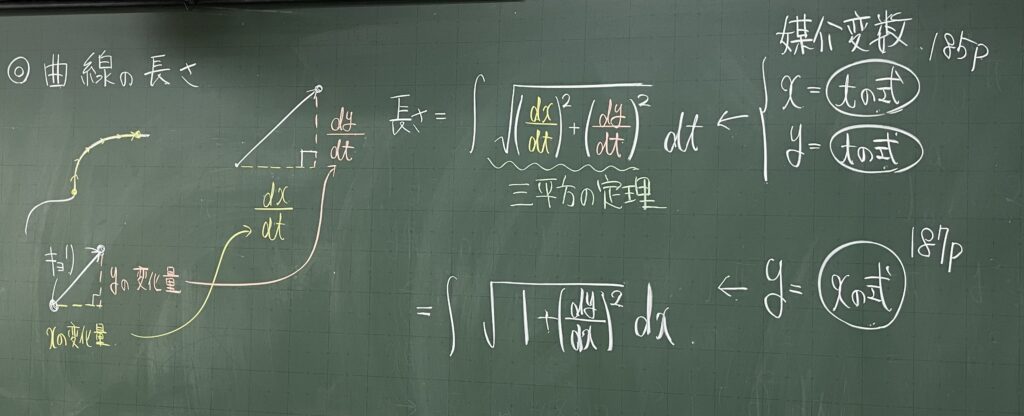 ◎ 曲線の長さ
キョリ
yの変化量
xの変化量
dy/dt
dx/dt
長さ = ∫ √((dx/dt)² + (dy/dt)²) dt ←
三平方の定理
媒介変数 185p
{ x = tの式
y = tの式
= ∫ √(1 + (dy/dx)²) dx ← y = xの式 187p